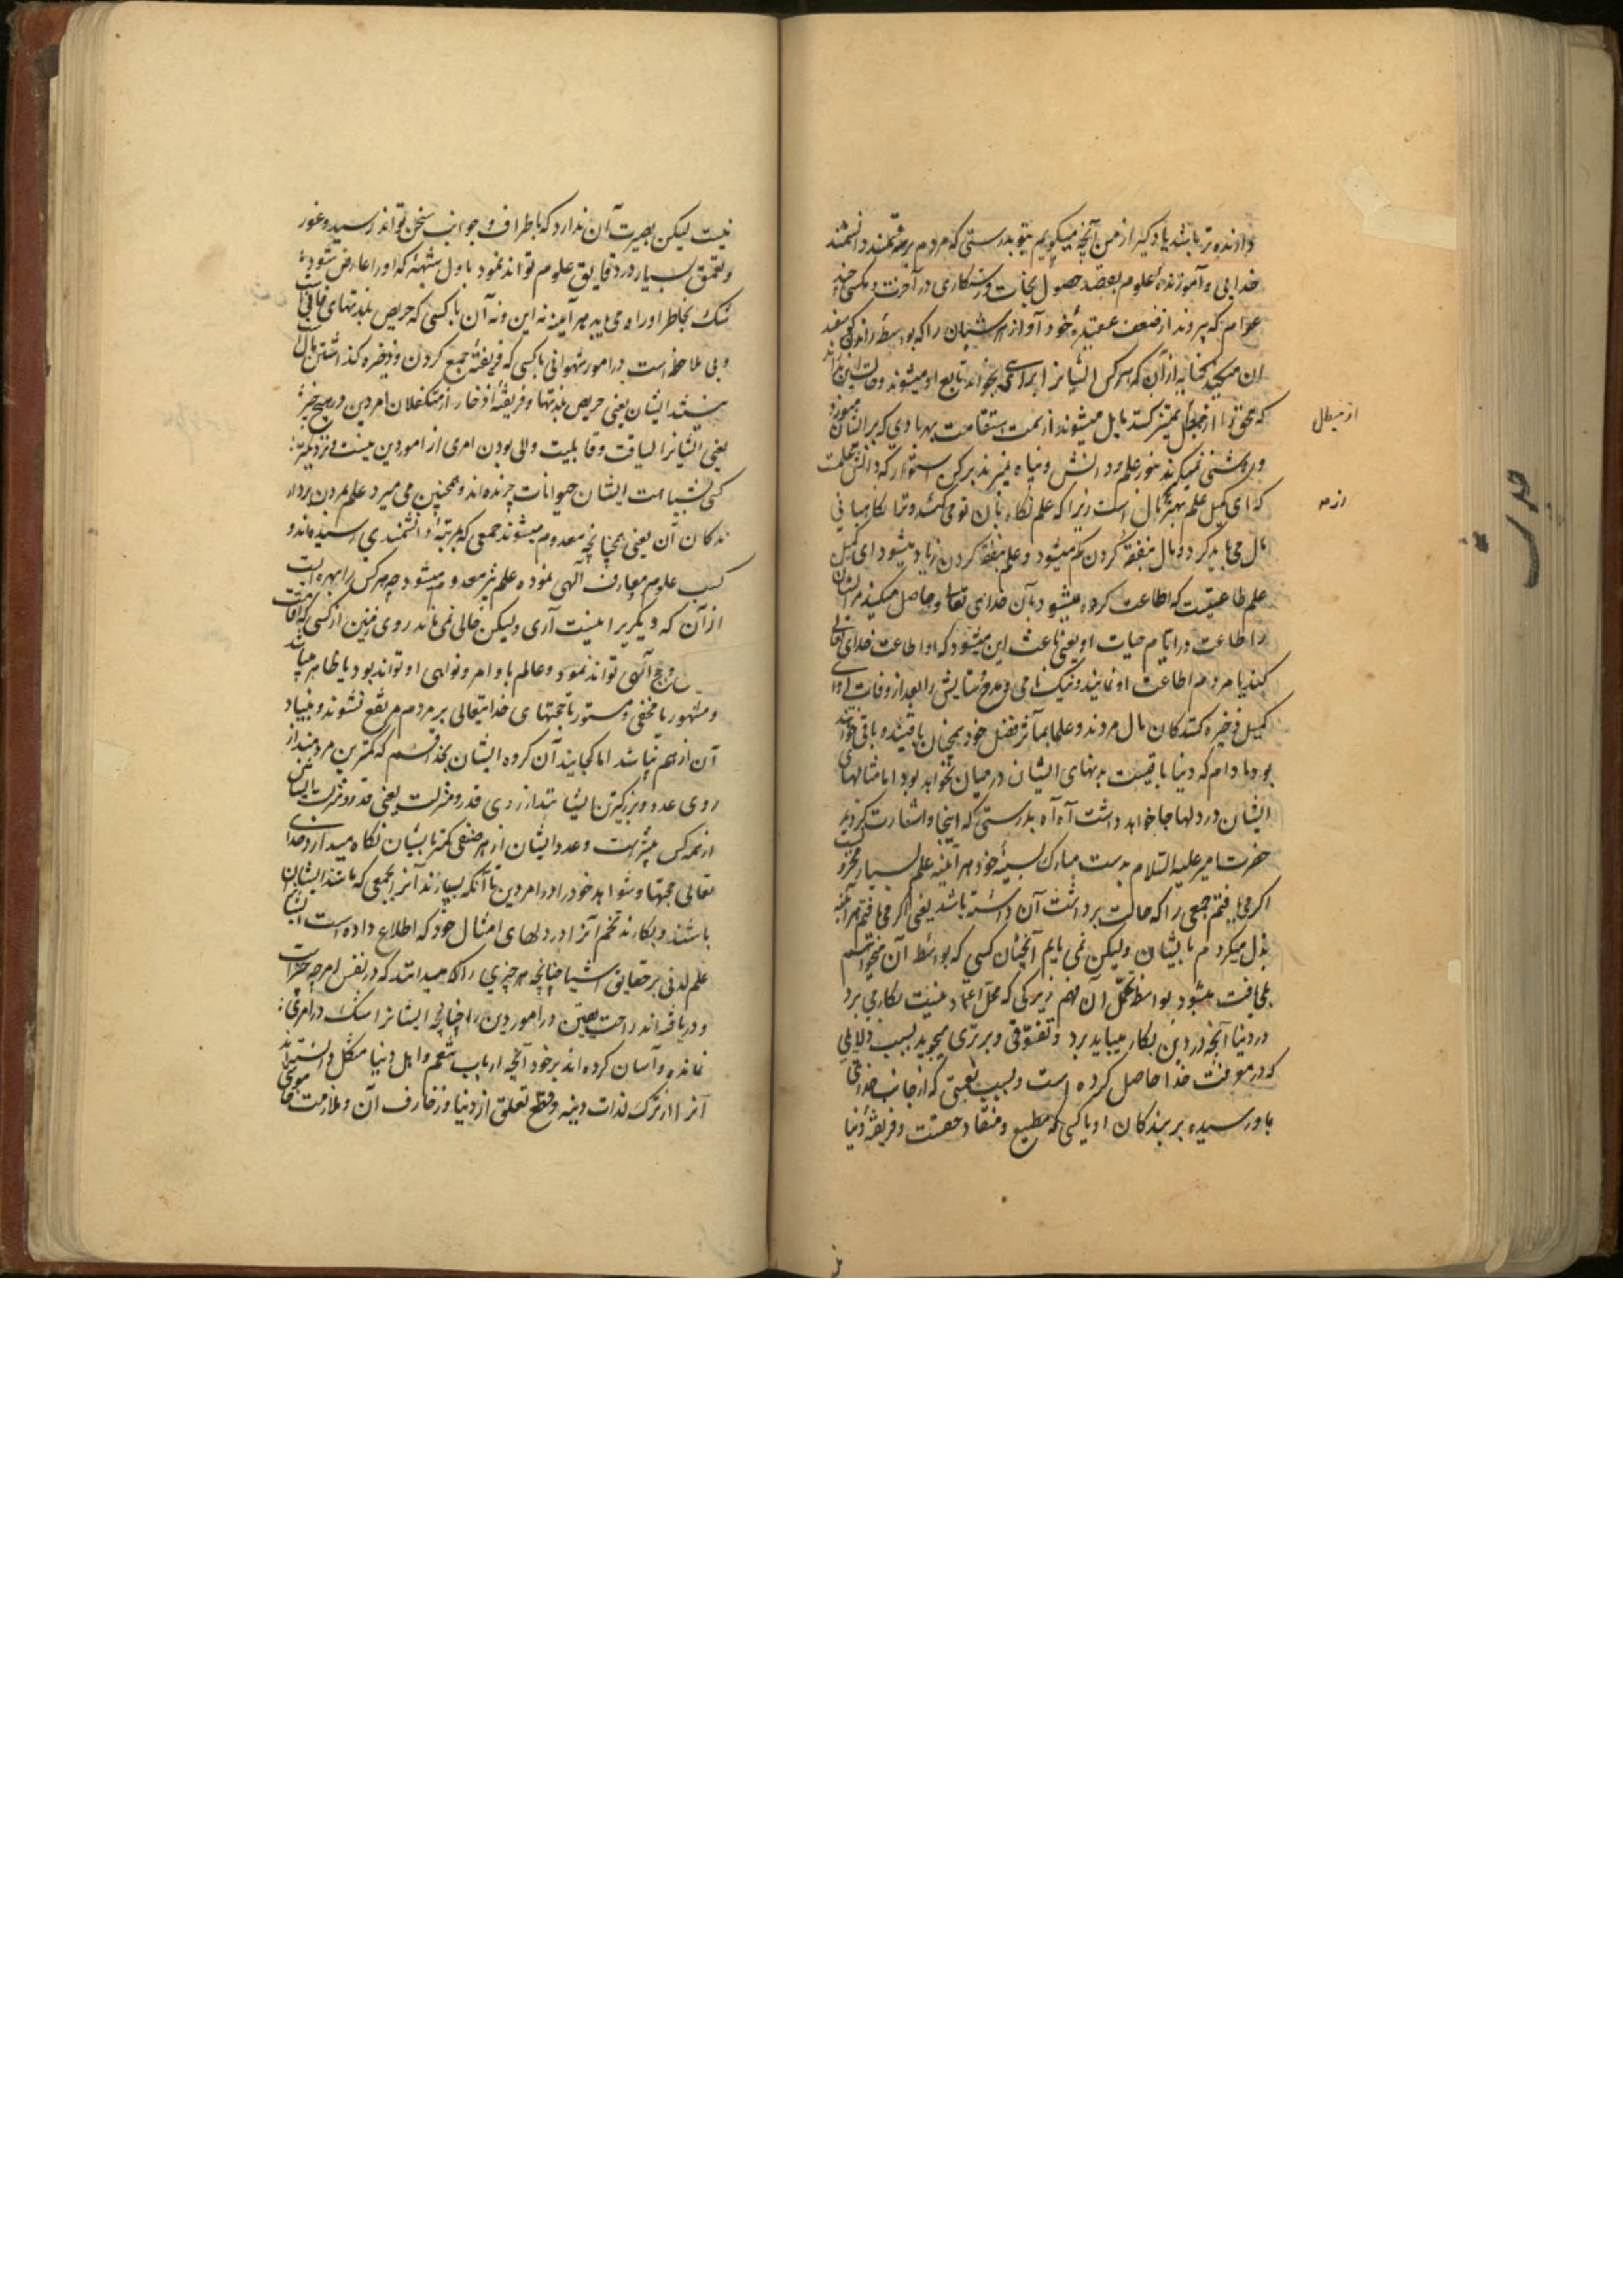 دارنده تر باشد یاد گیر از من آنچه میگویم بتو بدرستی که مردم سه قسمند دانشمند
خدایی و آموزندهٔ علوم بقصد حصول نجات و رستکاری در آخرت و مکسی چند
عوام که پیروند از ضعف عقیدهٔ خود آواز هر شبان را که بواسطهٔ راندن کوسفند
ان میکند کنایه از آن که هر کس ایشانرا براهی بخواند تابع او میشوند و
که محق را از مبطل تمیز کنند مایل میشوند از سمت استقامت بهر بادی که بر ایشان
و روشنی نمیکیرند بنور علم و دانش و پناه نمیبرند برکن استوار که دانش و حکمت
که ای کمیل علم بهتر از مال است زیرا که علم نگاه بان تو می کند و تو نگاهبانی
مال می باید کرد و مال بنفقه کردن کم میشود و علم بنفقه کردن زیاد میشود ای کمیل
علم طاعتیست که اطاعت کرده میشود بآن خدای تعالی و حاصل میکند مر انسان
را طاعت در ایام حیات او یعنی باعث این میشود که او اطاعت خدای تعالی
کند یا مردم اطاعت او نمایند و نیک نامی و مدح و ستایش را بعد از وفات او ای
کمیل ذخیره کنندکان مال مردند و علما بمآثر فضل خود همچنان باقیند و باقی خواهند
بود مادام که دنیا باقیست بدنهای ایشان در میان نخواهد بود اما مثالهای
ایشان در دلها جا خواهد داشت آه آه بدرستی که اینجا و اشارت کردند
حضرت امیر علیه السلام بدست مبارک بسینهٔ خود هر آینه علم بسیار مخزونست
اکر می یافتم جمعی را که حالت برداشت آن داشته باشد یعنی اکر می یافتم هر آینه
بذل میکردم بایشان ولیکن نمی یابم آنچنان کسی که بواسطهٔ آن میخواستم
بلی یافت میشود بواسطهٔ تحمل آن فهم زیرکی که محل اعتماد نیست بکار می برد
در دنیا آنچه در دین بکار میباید برد و تفوقی و برتری میجوید بسبب دلایلی
که در معرفت خدا حاصل کرده است و بسبب نعمتی که از جانب خدایتعالی
باو رسیده بر بندکان او یا کسی که مطیع و منقاد حقست و فریفتهٔ دنیا
از مبطل
از مه
نیست لیکن بصیرت آن ندارد که باطراف و جوانب سخن تواند رسید و غور
و تعمق بسیار در دقایق علوم تواند نمود باول شبههٔ که او را عارض شود
شک بخاطر او راه می یابد هر آینه نه این و نه آن یا کسی که حریص بلذتهای فانی است
و بی ملاحظه است در امور شهوانی یا کسی که فریفتهٔ جمع کردن و ذخیره کذاشتن مال است
نیستند ایشان یعنی حریص بلذتها و فریفتهٔ اذخار از متکفلان امر دین در هیچ چیز
یعنی ایشانرا لیاقت و قابلیت والی بودن امری از امور دین نیست نزدیکترین
کسی بشباهت ایشان حیوانات چرنده اند و همچنین می میرد علم بمردن بردار
ندکان آن یعنی همچنانچه معدوم میشوند جمعی که بمرتبهٔ دانشمندی رسیده اند و
کسب علوم معارف آلهی نموده علم نیز معدوم میشود چه هر کس را بهره ایست
از آن که دیکریرا نیست آری ولیکن خالی نمی ماند روی زمین از کسی که اقامت
حجج آلهی تواند نمود و عالم باوامر و نواهی او تواند بود یا ظاهر
و مشهور یا مخفی و مستور تا حجتهای خدایتعالی بر مردم مرتفع نشوند و بنیاد
آن از هم نپاشد اما کجایند آن کروه ایشان بخدا قسم که کمترین مردمند از
روی عدد و بزرکترین ایشانند از روی قدر و منزلت یعنی قدر و منزلت ایشان
از همه کس بیشتر است و عدد ایشان از هر صنفی کمتر بایشان نگاه میدارد خدای
تعالی حجتها و شواهد خود را در امر دین تا آنکه بسپارند آنرا بجمعی که مانند ایشان
باشند و بکارند تخم آنرا در دلهای امثال خود که اطلاع داده است ایشانرا
علم لدنی بر حقایق اشیا چنانچه هر چیزی را که میدانند که در نفس امر چه چیز است
و دریافته اند راحت یقین در امور دین را چنانچه ایشانرا شک در امری
نمانده و آسان کرده اند بر خود آنچه ارباب تنعم و اهل دنیا مشکل دانسته اند
آنرا از ترک لذات دنیه و قطع تعلق از دنیا و زخارف آن و ملازمت